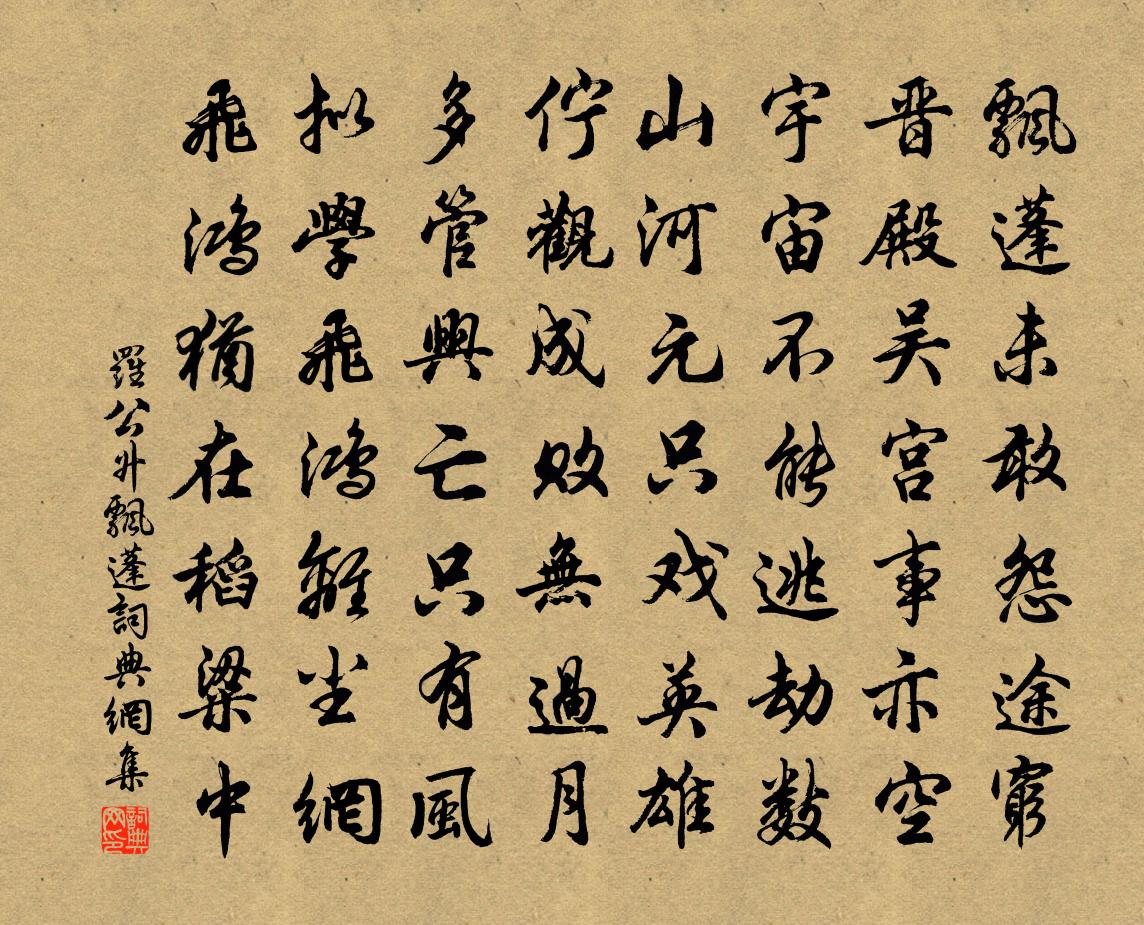 飄蓬未敢怨途窮
晋殿吴宫事亦空
宇宙不能逃劫數
山河元只戏英雄
佇觀成敗無過月
多管興亡只有風
拟學飛鴻難坐網
飛鴻猶在稻粱中
羅公升飄蓬詞典網集
詞典网印